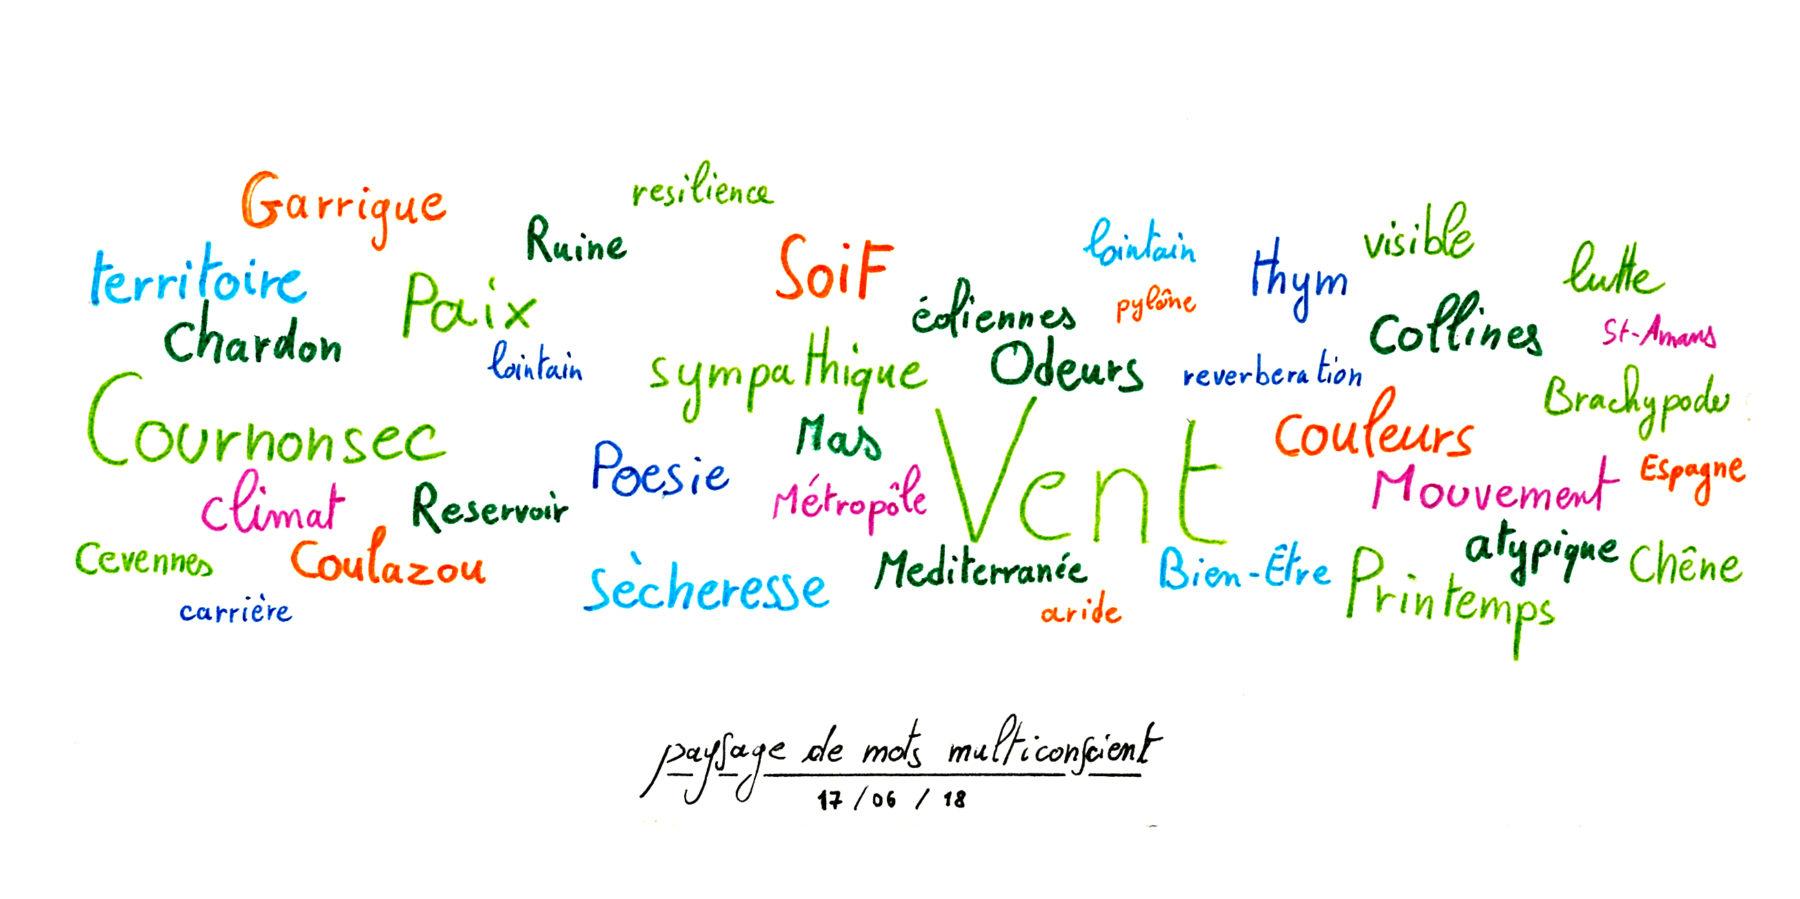 Garrigue
resilience
Ruine
territoire
Paix
Soif
lointain
thym
visible
lutte
chardon
lointain
sympathique
éoliennes
pylône
Odeurs
reverberation
Collines
St-Amans
Brachypode
Cournonsec
Poesie
Mas
Vent
Couleurs
Espagne
climat
Reservoir
Métropôle
Mouvement
Cevennes
Coulazou
Sècheresse
Mediterranée
Bien-Être
Printemps
atypique
Chêne
carrière
aride
paysage de mots multiconscient
17/06/18